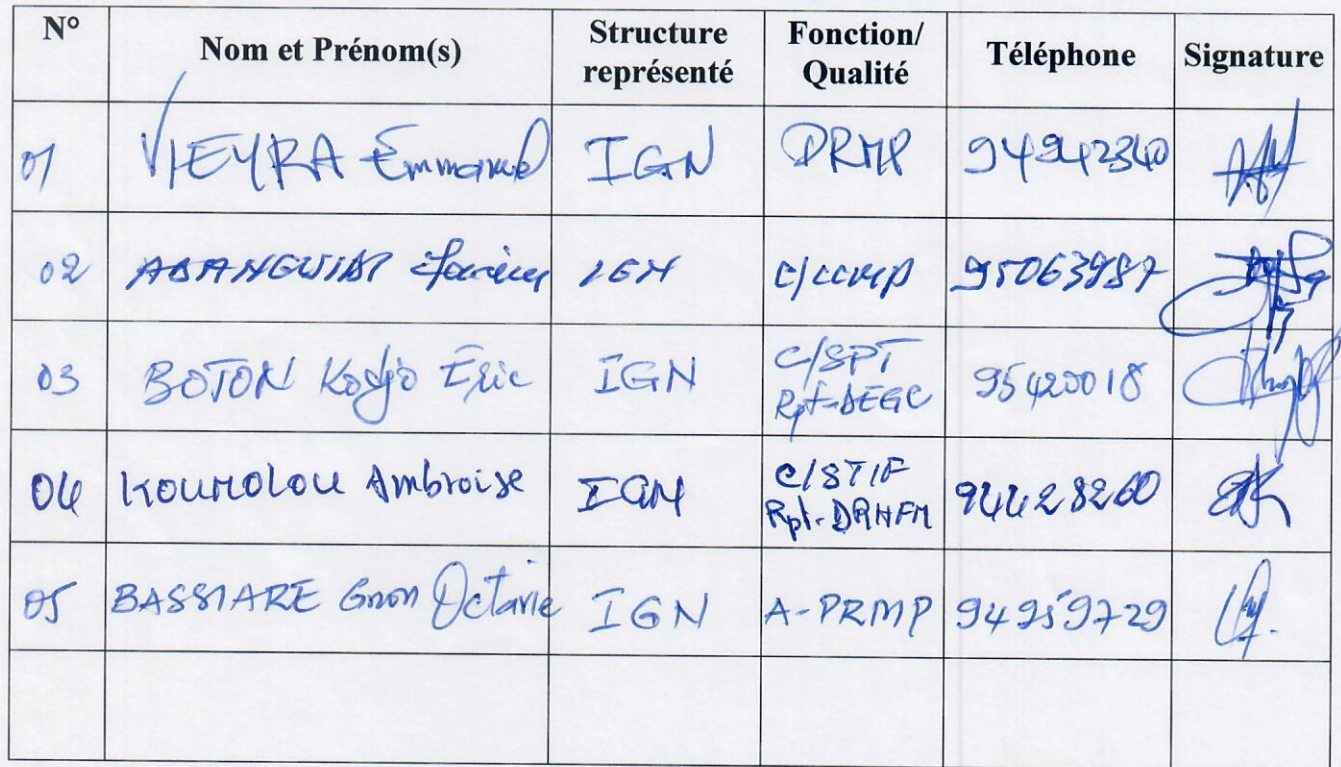 N° Nom et Prénom(s) Structure représenté Fonction/ Qualité Téléphone Signature
01 VIEYRA Emmanuel IGN PRMP 94942340
02 IGN C/CCMP 95063987
03 BOTON Kodjo Éric IGN C/SPT Rpt-DEGC 95420018
04 KOUMOLOU Ambroise IGN C/STIF Rpt-DRHFM 94428260
05 BASSIARE Gnon Octavie IGN A-PRMP 94959729